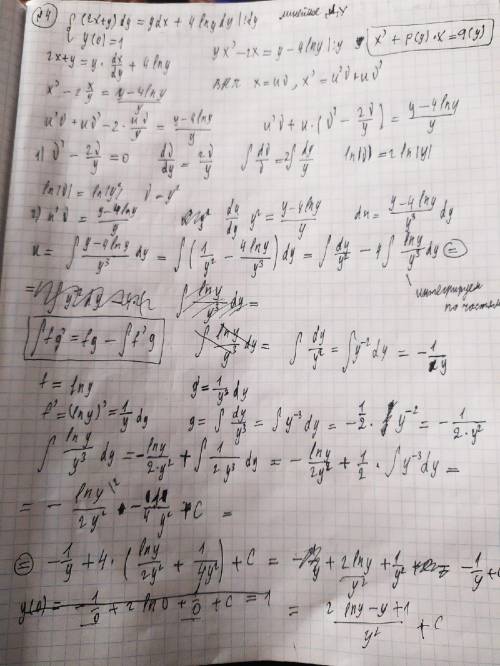 №4 { (2x+y)dy = ydx + 4lny dy |:dy
y(0)=1
линейное
2x+y = y·dx/dy + 4lny
yx'-2x = y-4lny |:y
x'+p(y)·x=q(y)
x' - 2x/y = (y-4lny)/y
x=uϑ, x'=u'ϑ+uϑ'
u'ϑ+uϑ'-2·uϑ/y = (y-4lny)/y
u'ϑ+u·(ϑ'-2ϑ/y) = (y-4lny)/y
1) ϑ'-2ϑ/y=0 dϑ/dy=2ϑ/y ∫dϑ/ϑ=2∫dy/y ln|ϑ|=2ln|y|
ln|ϑ|=ln|y²| ϑ=y²
2) u'ϑ=(y-4lny)/y du/dy y²=(y-4lny)/y du=(y-4lny)/y³ dy
u = ∫(y-4lny)/y³ dy = ∫(1/y² - 4lny/y³)dy = ∫dy/y² - 4∫lny/y³ dy =
интегрируем
по частям
∫lny/y³ dy =
∫fg'=fg-∫f'g
∫lny/y³ dy = ∫dy/y² = ∫y⁻²dy = -1/y
f=lny g'=1/y³ dy
f'=(lny)'=1/y dy g=∫dy/y³=∫y⁻³dy=-1/2·y⁻²=-1/(2·y²)
∫lny/y³ dy = -lny/(2·y²)+∫1/(2y³)dy = -lny/(2y²)+1/2·∫y⁻³dy =
= -lny/(2y²) - 1/(4y²) + C =
= -1/y+4·(lny/(2y²)+1/(4y²))+C = -1/y+2lny/y²+1/y²
y(0)=-1/0+2ln0+1/0+C=1
= (2lny-y+1)/y² + C